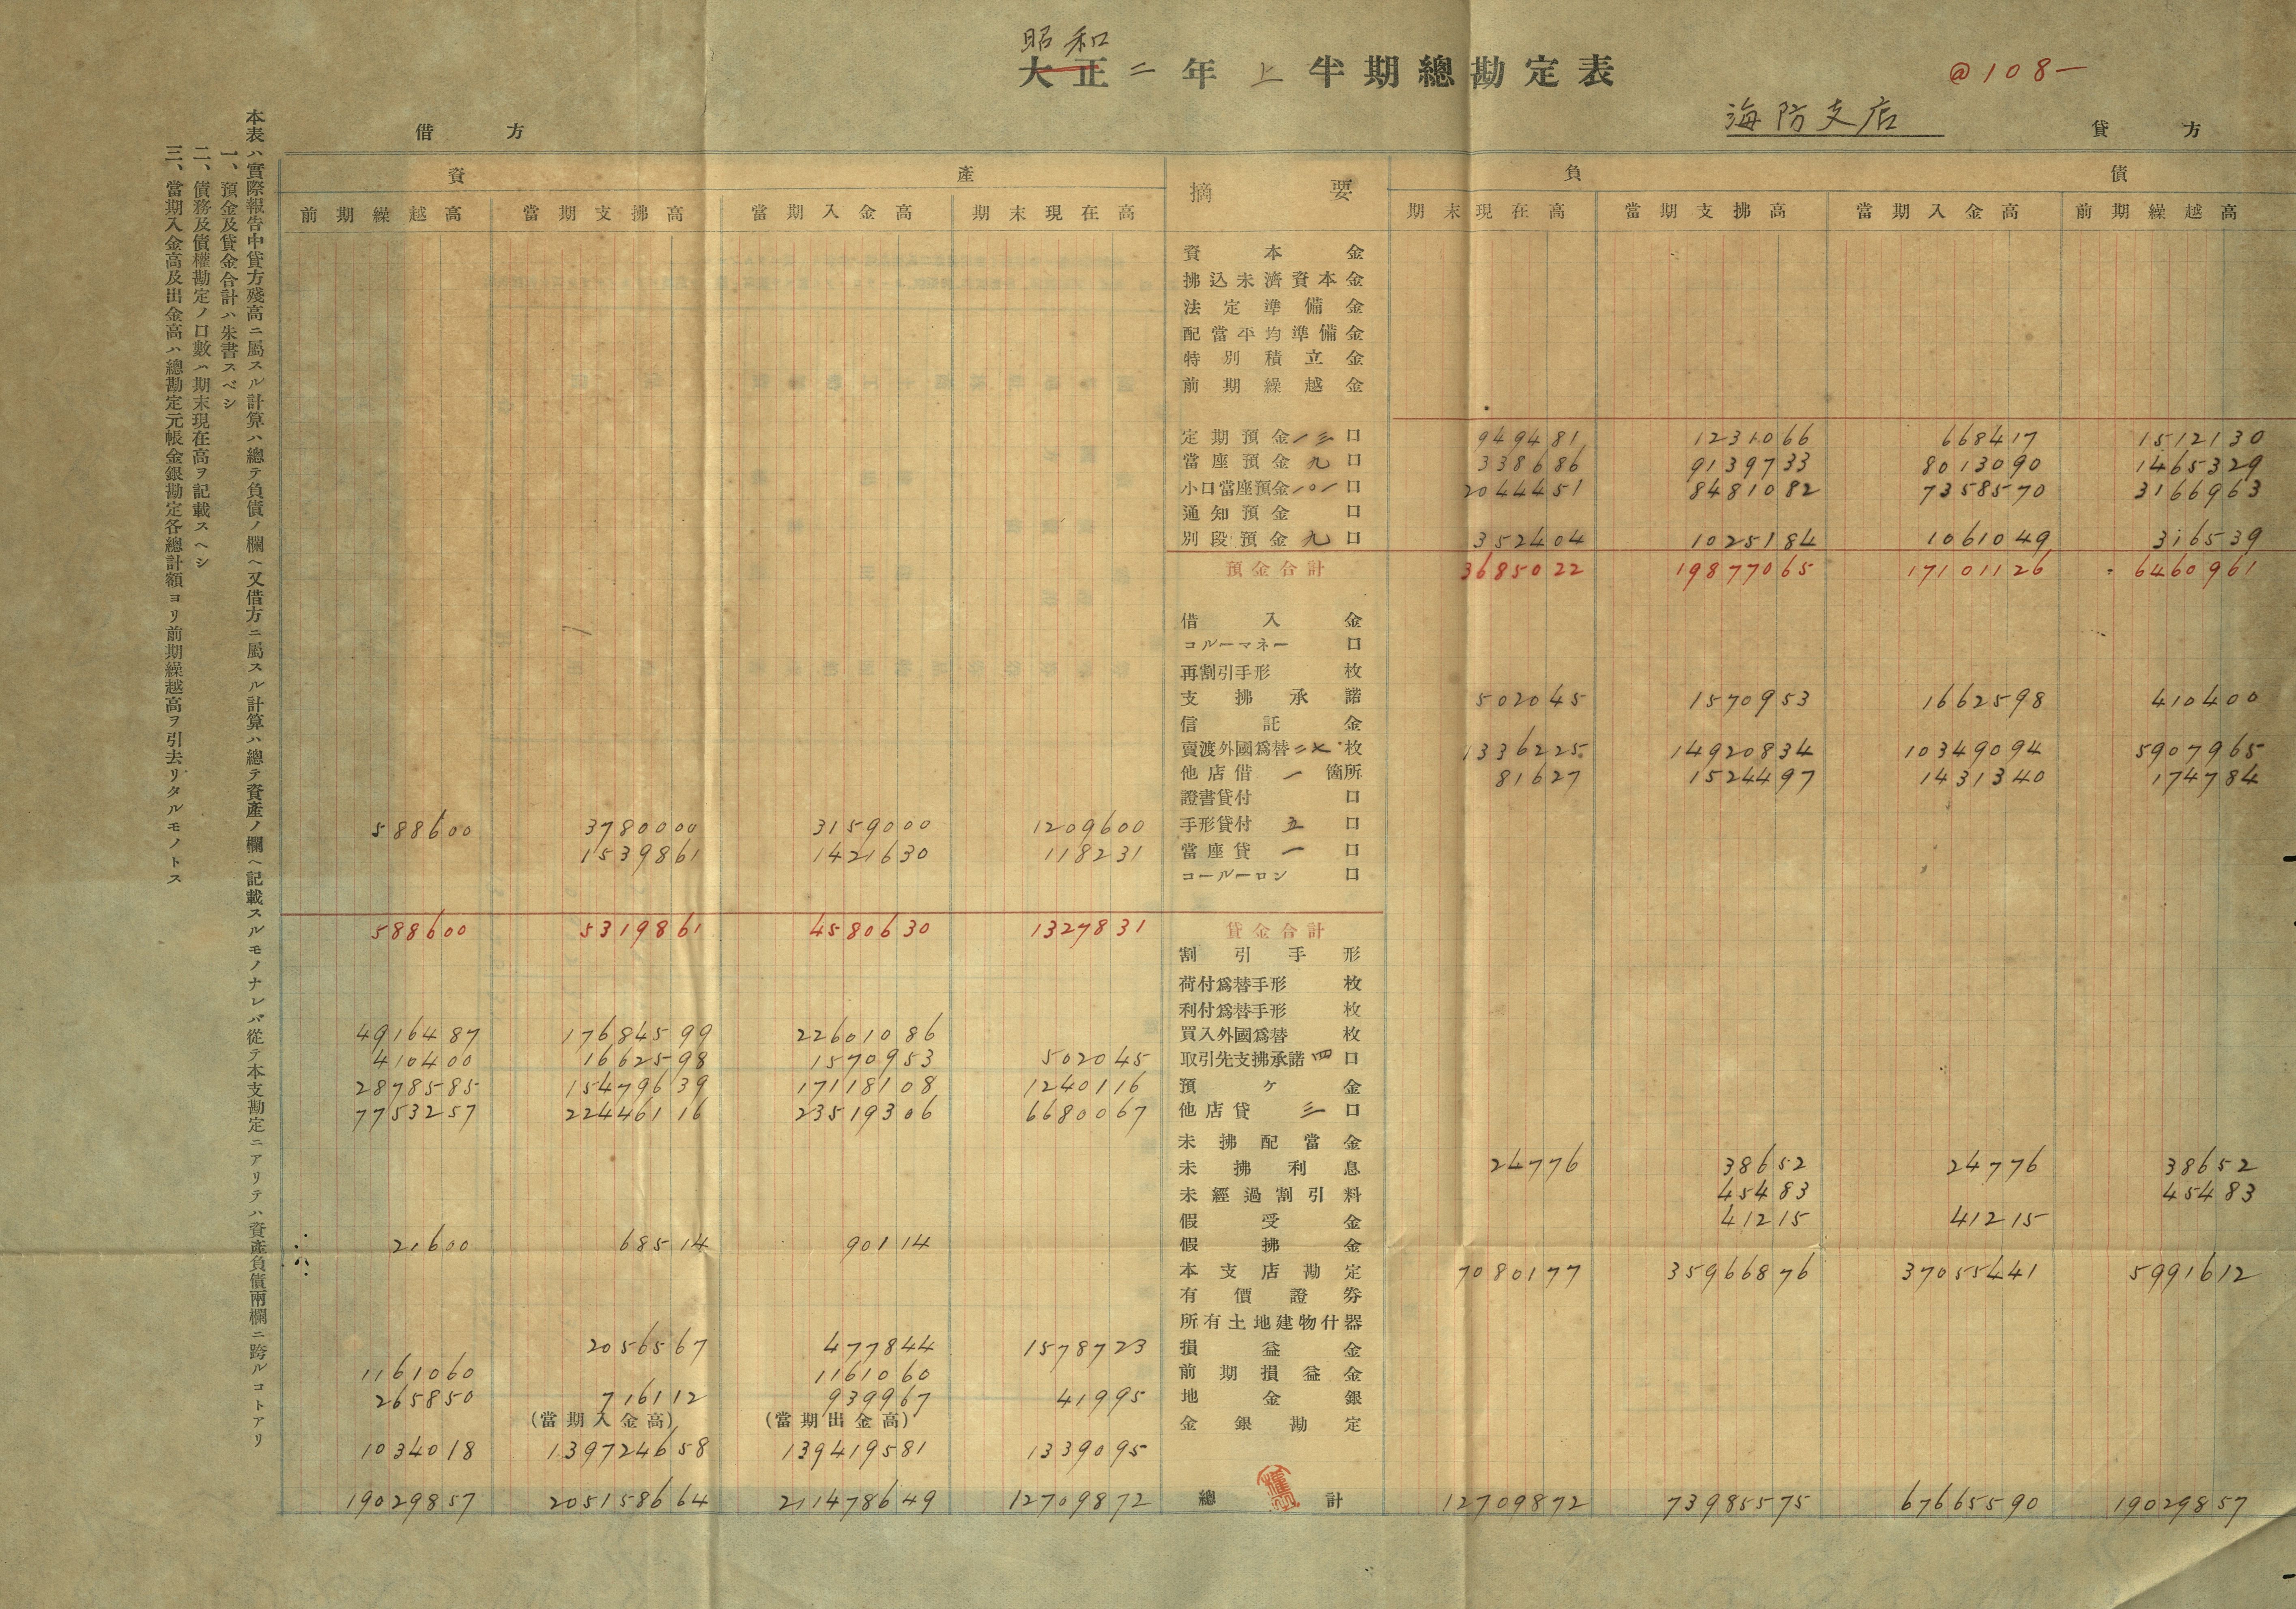 昭和
大正二年上半期總勘定表
@108—
海防支店
借方
貸方
資產
摘要
負債
前期繰越高 當期支拂高 當期入金高 期末現在高
期末現在高 當期支拂高 當期入金高 前期繰越高
資本金
拂込未濟資本金
法定準備金
配當平均準備金
特別積立金
前期繰越金
定期預金一三口 949481 1231066 668417 1512130
當座預金九口 338686 9139733 8013090 1465329
小口當座預金一〇一口 2044451 8481082 7358570 3166963
通知預金口
別段預金九口 352404 1025184 1061049 316539
預金合計 3685022 19877065 17101126 6460961
借入金
コルーマネー口
再割引手形枚
支拂承諾 502045 1570953 1662598 410400
信託金
賣渡外國爲替二七枚 1336225 14920834 10349094 5907965
他店借一箇所 81627 1524497 1431340 174784
證書貸付口
588600 3780000 3159000 1209600 手形貸付五口
1539861 1421630 118231 當座貸一口
コールーロン口
588600 5319861 4580630 1327831 貸金合計
割引手形
荷付爲替手形枚
利付爲替手形枚
4916487 17684599 22601086 買入外國爲替枚
410400 1662598 1570953 502045 取引先支拂承諾四口
2878585 15479639 17118108 1240116 預ケ金
7753257 22446116 23519306 6680067 他店貸三口
未拂配當金
未拂利息 24776 38652 24776 38652
未經過割引料 45483 45483
假受金 41215 41215
21600 68514 90114 假拂金
本支店勘定 7080177 35966876 37055441 5991612
有價證券
所有土地建物什器
2056567 477844 1578723 損益金
1161060 1161060 前期損益金
265850 716112 939967 41995 地金銀
(當期入金高) (當期出金高) 金銀勘定
1034018 139724658 139419581 1339095
19029857 205158664 211478649 12709872 總計 12709872 73985575 67665590 19029857
本表ハ實際報告中貸方殘高ニ屬スル計算ハ總テ負債ノ欄ヘ又借方ニ屬スル計算ハ總テ資產ノ欄ヘ記載スルモノナレバ從テ本支勘定ニアリテハ資產負債兩欄ニ跨ルコトアリ
一、預金及貸金合計ハ朱書スベシ
二、債務及債權勘定ノ口數ハ期末現在高ヲ記載スヘシ
三、當期入金高及出金高ハ總勘定元帳金銀勘定各總計額ヨリ前期繰越高ヲ引去リタルモノトス